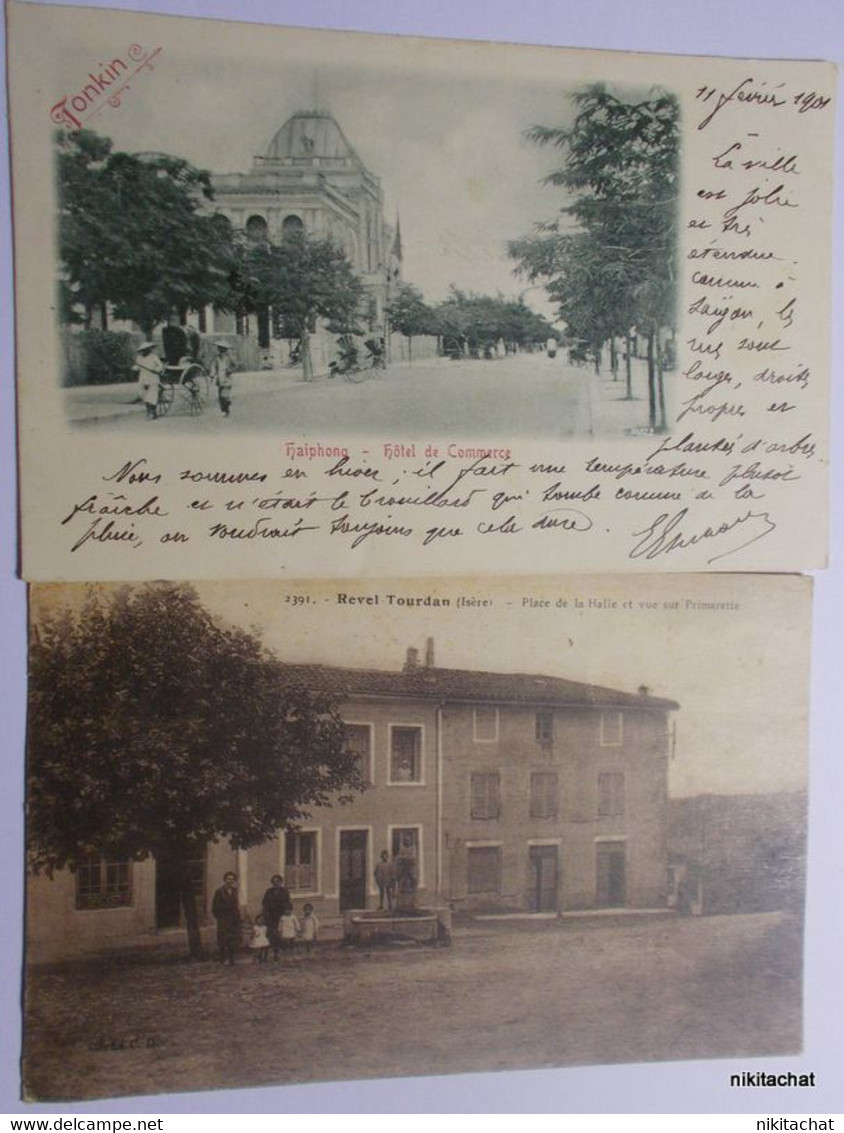 Tonkin
11 février 1901
La ville
est jolie
et très
étendue.
comme à
Saïgon, les
rues sont
larges, droites
propres et
plantés d'arbres
Haiphong - Hôtel de Commerce
Nous sommes en hiver ; il fait une température plutôt
fraîche et n'était le brouillard qui tombe comme de la
pluie, on voudrait toujours que cela dure.
2391. - Revel Tourdan (Isère) - Place de la Halle et vue sur Primarette
nikitachat
nikitachat
delcampe.net